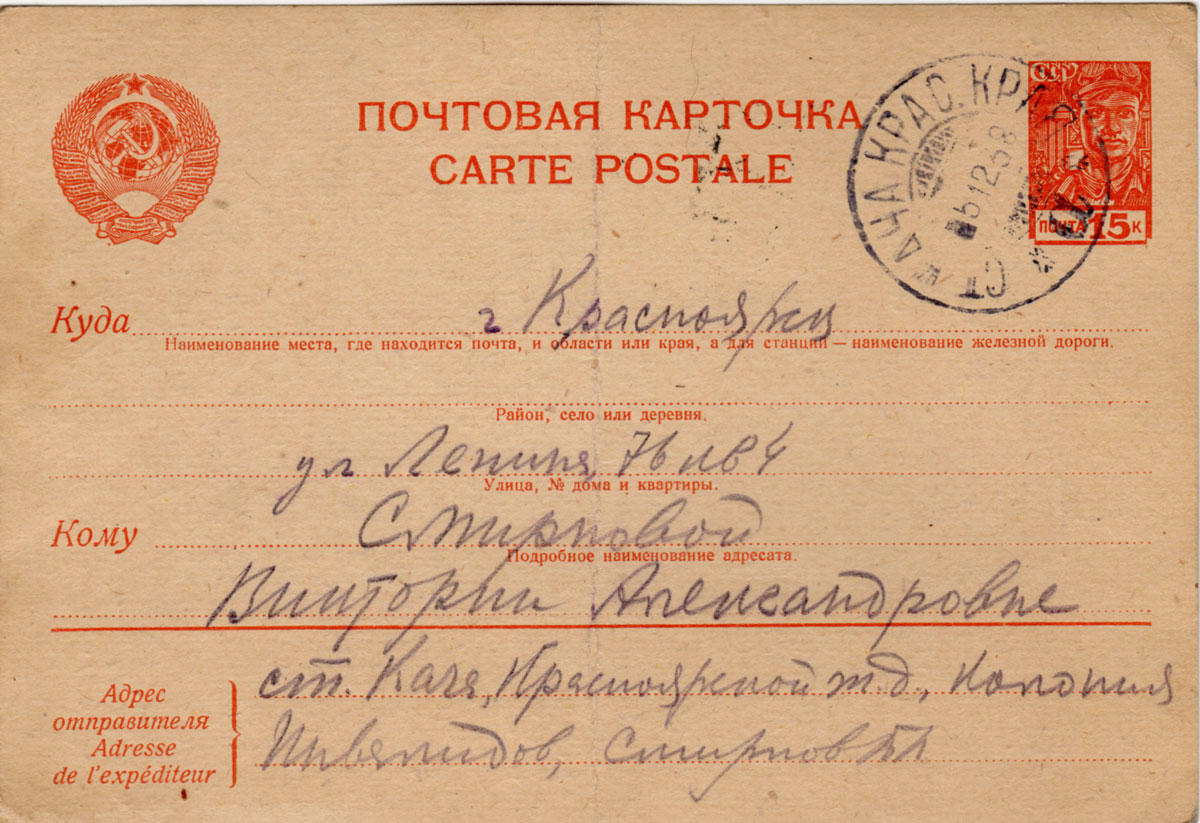 ПОЧТОВАЯ КАРТОЧКА
CARTE POSTALE
СССР
ПОЧТА 15 К
КАЧА КРАС. КРАЯ
12 58
СТ
Куда г Красноярск
Наименование места, где находится почта, и области или края, а для станции — наименование железной дороги.
Район, село или деревня.
ул Ленина, 76 кв 4
Улица, № дома и квартиры.
Кому Смирновой
Подробное наименование адресата.
Виктории Александровне
Адрес
отправителя
Adresse
de l'expéditeur
ст. Кача, Красноярской ж.д., Колония
Инвалидов, Смирнов